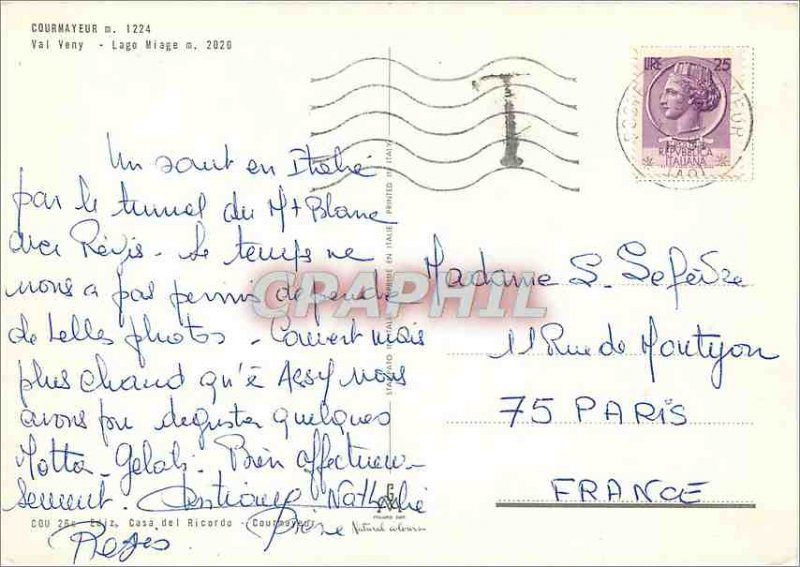 COURMAYEUR m. 1224
Val Veny - Lago Miage m. 2020
LIRE 25
REPVBBLICA
ITALIANA
T
Un saut en Italie
par le tunnel du Mt Blanc
avec Régis. Le temps ne
nous a pas permis de prendre
de belles photos - Couvert mais
plus chaud qu'à Assy nous
avons pu deguster quelques
Motta-Gelati. Bien affectueu-
sement. Nathalie
Régis
Madame S. Lefèvre
11 Rue de Montyon
75 PARIS
FRANCE
PRINTED IN ITALY
CPRAPHIL
Ediz. Casa del Ricordo - Courmayeur
Natural colours